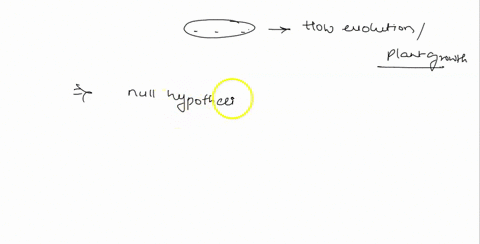 → How evolution/
plant growth
⇒ null hypothesis